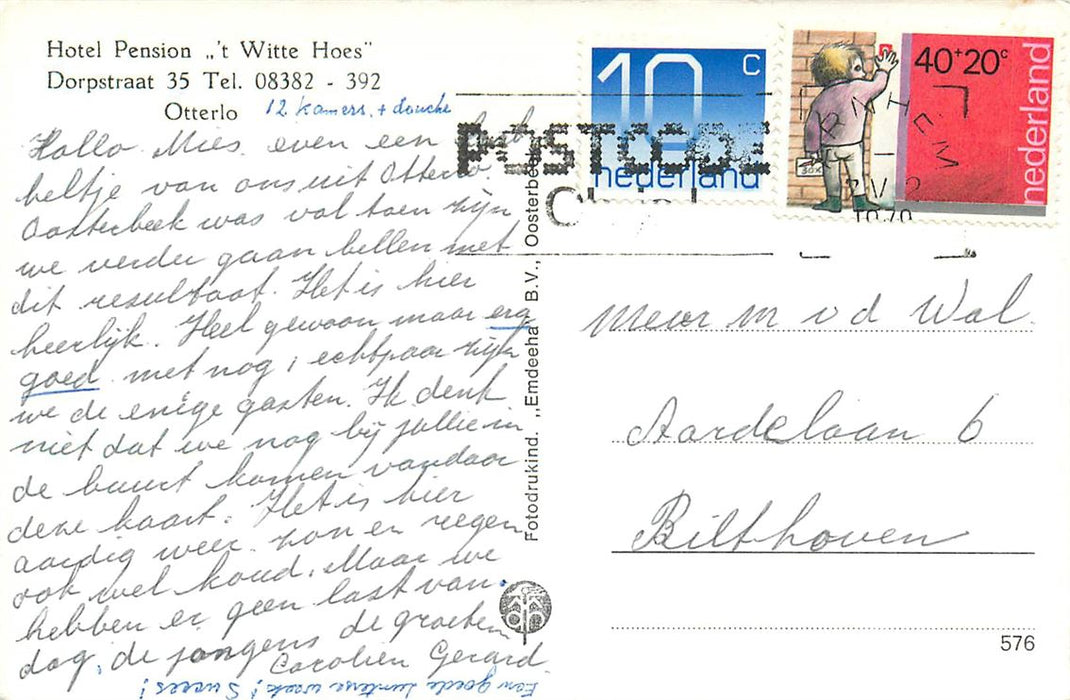 Hotel Pension „'t Witte Hoes"
Dorpstraat 35 Tel. 08382 - 392
Otterlo
12 kamers + douche
Hallo Mies even een
beltje van ons uit Otterlo
Oosterbeek was vol toen zijn
we verder gaan bellen met
dit resultaat. Het is hier
heerlijk. Heel gewoon maar erg
goed met nog 1 echtpaar zijn
we de enige gasten. Ik denk
niet dat we nog bij jullie in
de buurt komen vandaar
deze kaart. Het is hier
aardig weer. zon en regen
ook wel koud. Maar we
hebben er geen last van.
dag, de jongens de groeten
Carolien Gerard
Een goede week! Succes!
Fotodrukind. „Emdeeha" B.V., Oosterbeek
10c
nederland
40+20c
nederland
POSTCODE
ARNHEM
Mevr M v d Wal.
Aardelaan 6
Bilthoven
576